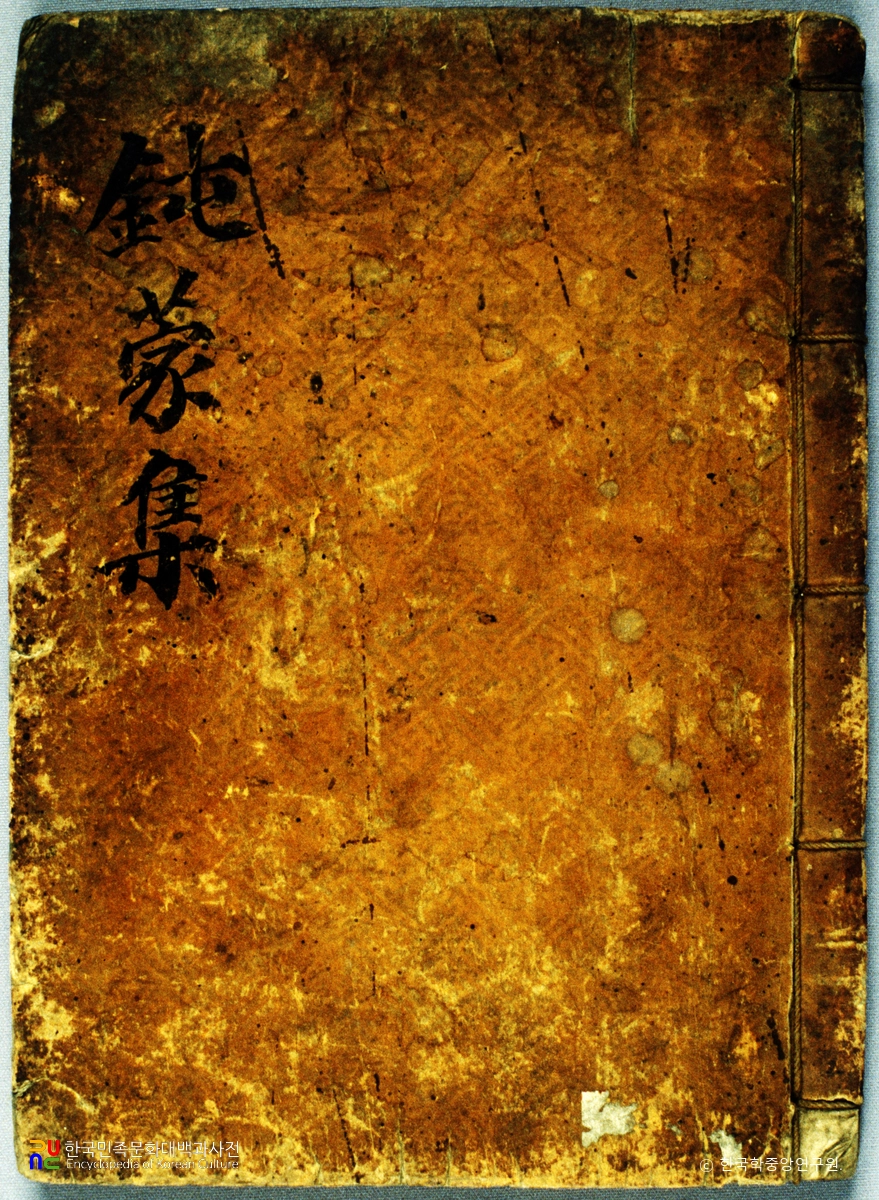 鈍蒙集
한국민족문화대백과사전
Encyclopedia of Korean Culture
© 한국학중앙연구원